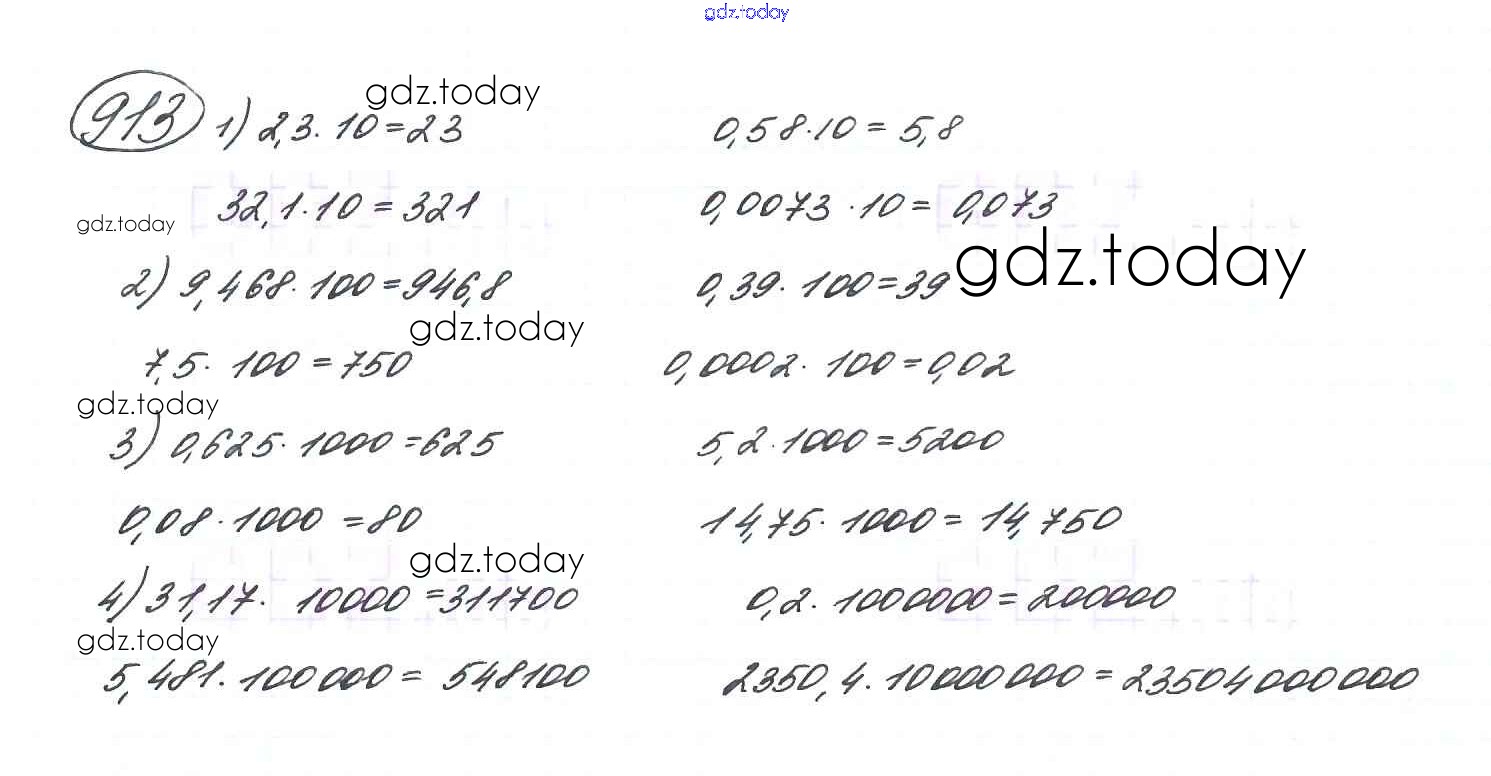 gdz.today
gdz.today
913 1) 2,3 · 10 = 23 0,58 · 10 = 5,8
32,1 · 10 = 321 0,0073 · 10 = 0,073
gdz.today
gdz.today
2) 9,468 · 100 = 946,8 0,39 · 100 = 39
gdz.today
7,5 · 100 = 750 0,0002 · 100 = 0,02
gdz.today
3) 0,625 · 1000 = 625 5,2 · 1000 = 5200
0,08 · 1000 = 80 14,75 · 1000 = 14,750
gdz.today
4) 31,17 · 10000 = 311700 0,2 · 1000000 = 200000
gdz.today
5,481 · 100000 = 548100 2350,4 · 10000000 = 23504000000